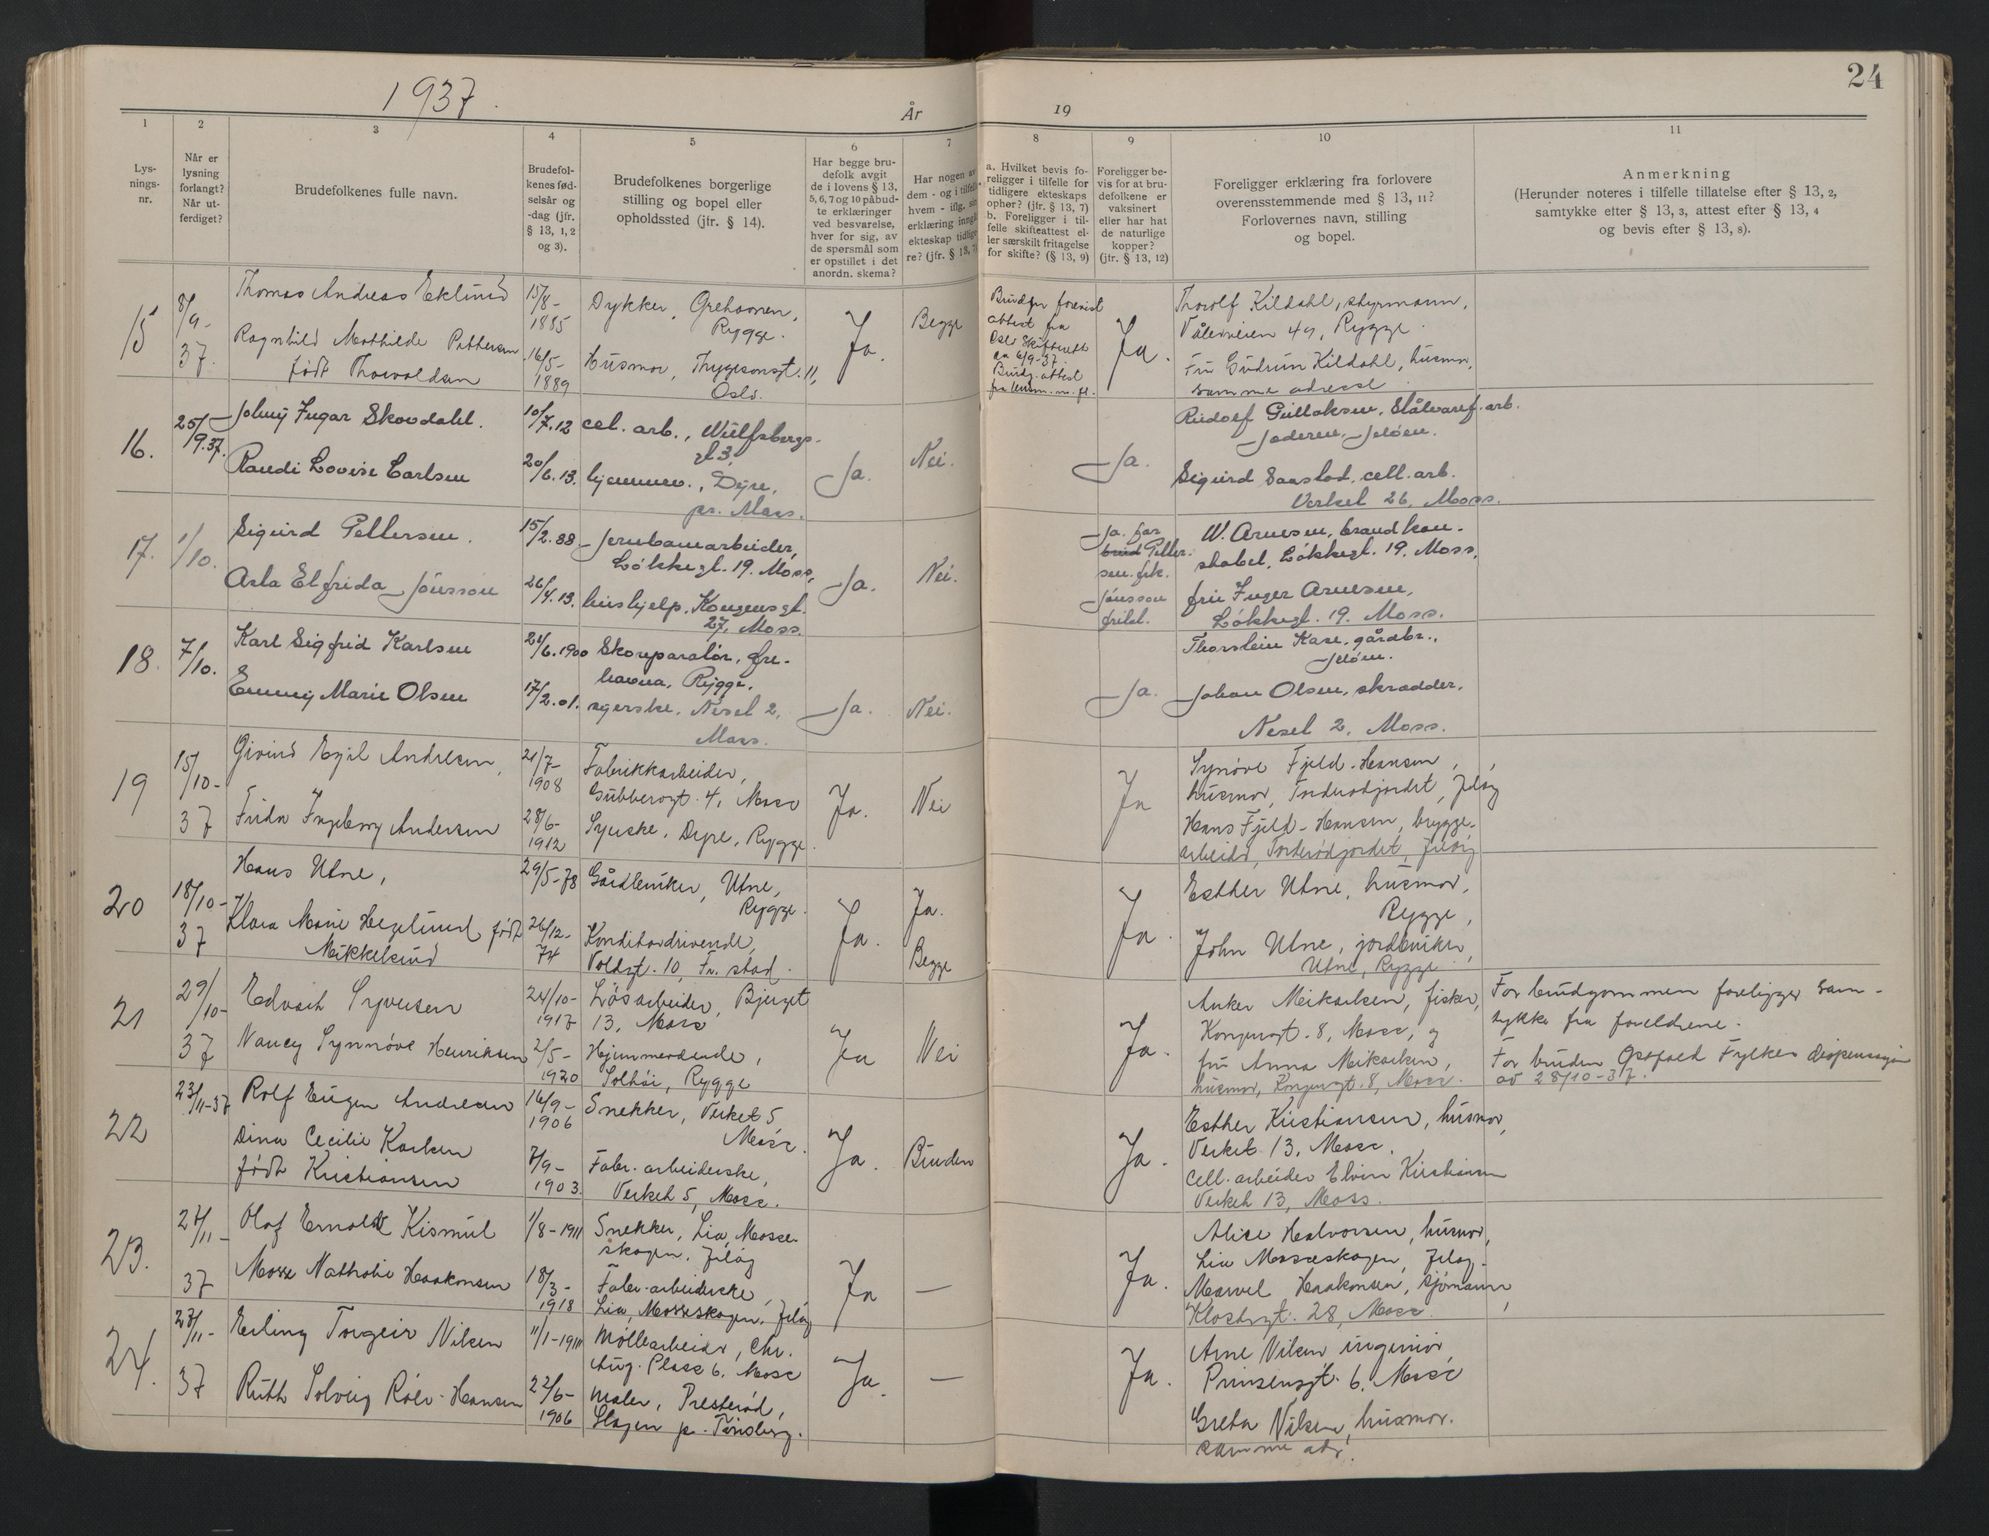 1937.
År
19
24
1
2
3
4
5
6
7
8
9
10
11
Lys-
nings-
nr.
Når er
lysning
forlangt?
Når ut-
ferdiget?
Brudefolkenes fulle navn.
Brudefol-
kenes fød-
selsår og
-dag (jfr.
§ 13, 1, 2
og 3).
Brudefolkenes borgerlige
stilling og bopel eller
opholdssted (jfr. § 14).
Har begge bru-
defolk avgit
de i lovens § 13,
5, 6, 7 og 10 påbud-
te erklæringer
ved besvarelse,
hver for sig, av
de spørsmål som
er opstillet i det
anordn. skema?
Har nogen av
dem - og i tilfelle
hvem - iflg. sin
erklæring inngått
ekteskap tidlige-
re? (jfr. § 13, 7)
a. Hvilket bevis fo-
religger i tilfelle for
tidligere ekteskaps
ophør? (jfr. § 13, 7)
b. Foreligger i til-
felle skifteattest el-
ler særskilt fritagelse
for skifte? (§ 13, 9)
Foreligger be-
vis for at bru-
defolkene er
vaksinert
eller har hat
de naturlige
kopper?
(jfr. § 13, 12)
Foreligger erklæring fra forlovere
overensstemmende med § 13, 11?
Forlovernes navn, stilling
og bopel.
Anmerkning
(Herunder noteres i tilfelle tillatelse efter § 13, 2,
samtykke efter § 13, 3, attest efter § 13, 4
og bevis efter § 13, 8).
15
8/9-
37.
Thomas Andreas Eklund
Ragnhild Mathilde Pettersen
født Thorvaldsen
15/8-
1885
16/5-
1889
Dykker, Grehavnen,
Rygge.
Husmor, Thygesonsgt. 11,
Oslo.
Ja.
Begge
attest fra
6/9-37.
Ja.
Thorolf Kildahl, styrmann,
Vålerveien 49, Rygge.
Fru Gudrun Kildahl, husmor,
samme adresse
16.
25/9.37.
Johny Ingar Skovdahl.
Randi Lovise Carlsen
10/7.12
20/6.13.
cel. arb., Wulfsbergs-
gt 3.
hjemmev., Dyre,
pr. Moss.
Ja.
Nei.
Ja.
Rudolf Gulloksen, Stålvaref. arb.
Jaderen, Jeløen.
Sigurd Saastad, cell. arb.
Verket 26, Moss.
17.
1/10.
Sigurd Pettersen.
Asta Elfrida Jönsson
15/2.88
26/4.13.
Jernbanearbeider,
Løkkegt. 19. Moss,
hushjelp, Kongensgt.
27, Moss.
Ja.
Nei.
Ja. for
brud Petter-
sen. frk.
Jönsson
W. Arnesen, brandkon-
stabel, Løkkegt. 19. Moss,
fru Inger Arnesen,
Løkkegt. 19. Moss.
18.
7/10.
Karl Sigfrid Karlsen
Emmy Marie Olsen
24/6.1900
17/2.01.
Skoreparatør, Gre-
havna, Rygge.
syerske, Neset 2,
Moss.
Ja.
Nei.
Ja.
Thorstein Kase, gårdbr.,
Jeløen.
Johan Olsen, skredder,
Neset 2, Moss.
19
15/10-
37
Eivind Egil Andresen,
Frida Ingeborg Andersen
21/7-
1908
28/6-
1912
Fabrikkarbeider,
Gubberogt. 4, Moss
Syerske, Dyre, Rygge.
Ja.
Nei
Ja
Synøve Fjeld-Hansen,
husmor, Torderødjordet, Jeløy
Hans Fjeld-Hansen, brygge-
arbeider, Torderødjordet, Jeløy
20
18/10-
37
Hans Utne,
Klara Marie Hegelund født
Mikkelsund
29/5-78
26/12-
74
Gårdbruker, Utne,
Rygge.
Konditordrivende,
Voldgt. 10, Fr. stad.
Ja.
Ja.
Begge
Ja.
Esther Utne, husmor,
Rygge,
John Utne, jordbruker,
Utne, Rygge
21
29/10-
37
Edvart Syversen
Nancy Synnøve Henriksen
24/10-
1917
2/5-
1920
Løsarbeider, Bjerget
13, Moss
Hjemmeværende,
Solhøi, Rygge
Ja
Nei
Ja.
Anker Mikalsen, fisker,
Kongensgt. 8, Moss, og
fru Anna Mikalsen,
husmor, Kongensgt. 8, Moss.
For brudgommen foreligger sam-
tykke fra foreldrene.
For bruden Østfold Fylkes dispensasjon
av 28/10-37.
22
23/11-37
Rolf Eugen Andresen
Dina Cecilie Karlsen
født Kristiansen
16/9-
1906
7/9-
1903.
Snekker, Verket 5
Moss.
Fabr. arbeiderske,
Verket 5, Moss.
Ja.
Bruden
Ja.
Esther Kristiansen, husmor,
Verket 13, Moss.
Cell. arbeider Elvin Kristiansen
Verket 13, Moss.
23.
24/11-
37
Olaf Ernoldt Kismul
Mosse Nathalie Haakonsen
1/8-1911
18/3-
1918
Snekker, Lia, Mosse-
skogen, Jeløy
Fabr. arbeiderske,
Lia, Mosseskogen, Jeløy
Ja
—
Ja.
Alice Halvorsen, husmor,
Lia Mosseskogen, Jeløy.
Marvel Haakonsen, sjømann,
Klostergt. 28, Moss.
24.
27/11-
37
Erling Torgeir Nilsen
Ruth Solveig Röer-Hansen
11/1-1911
22/6-
1906
Møllearbeider, Chr.
Aug. Plass 6, Moss
Maler, Presterød,
Slagen pr. Tønsberg.
Ja.
—
Ja.
Arne Nilsen ingeniør
Prinsensgt. 6, Moss
Greta Nilsen, husmor.
samme adr.